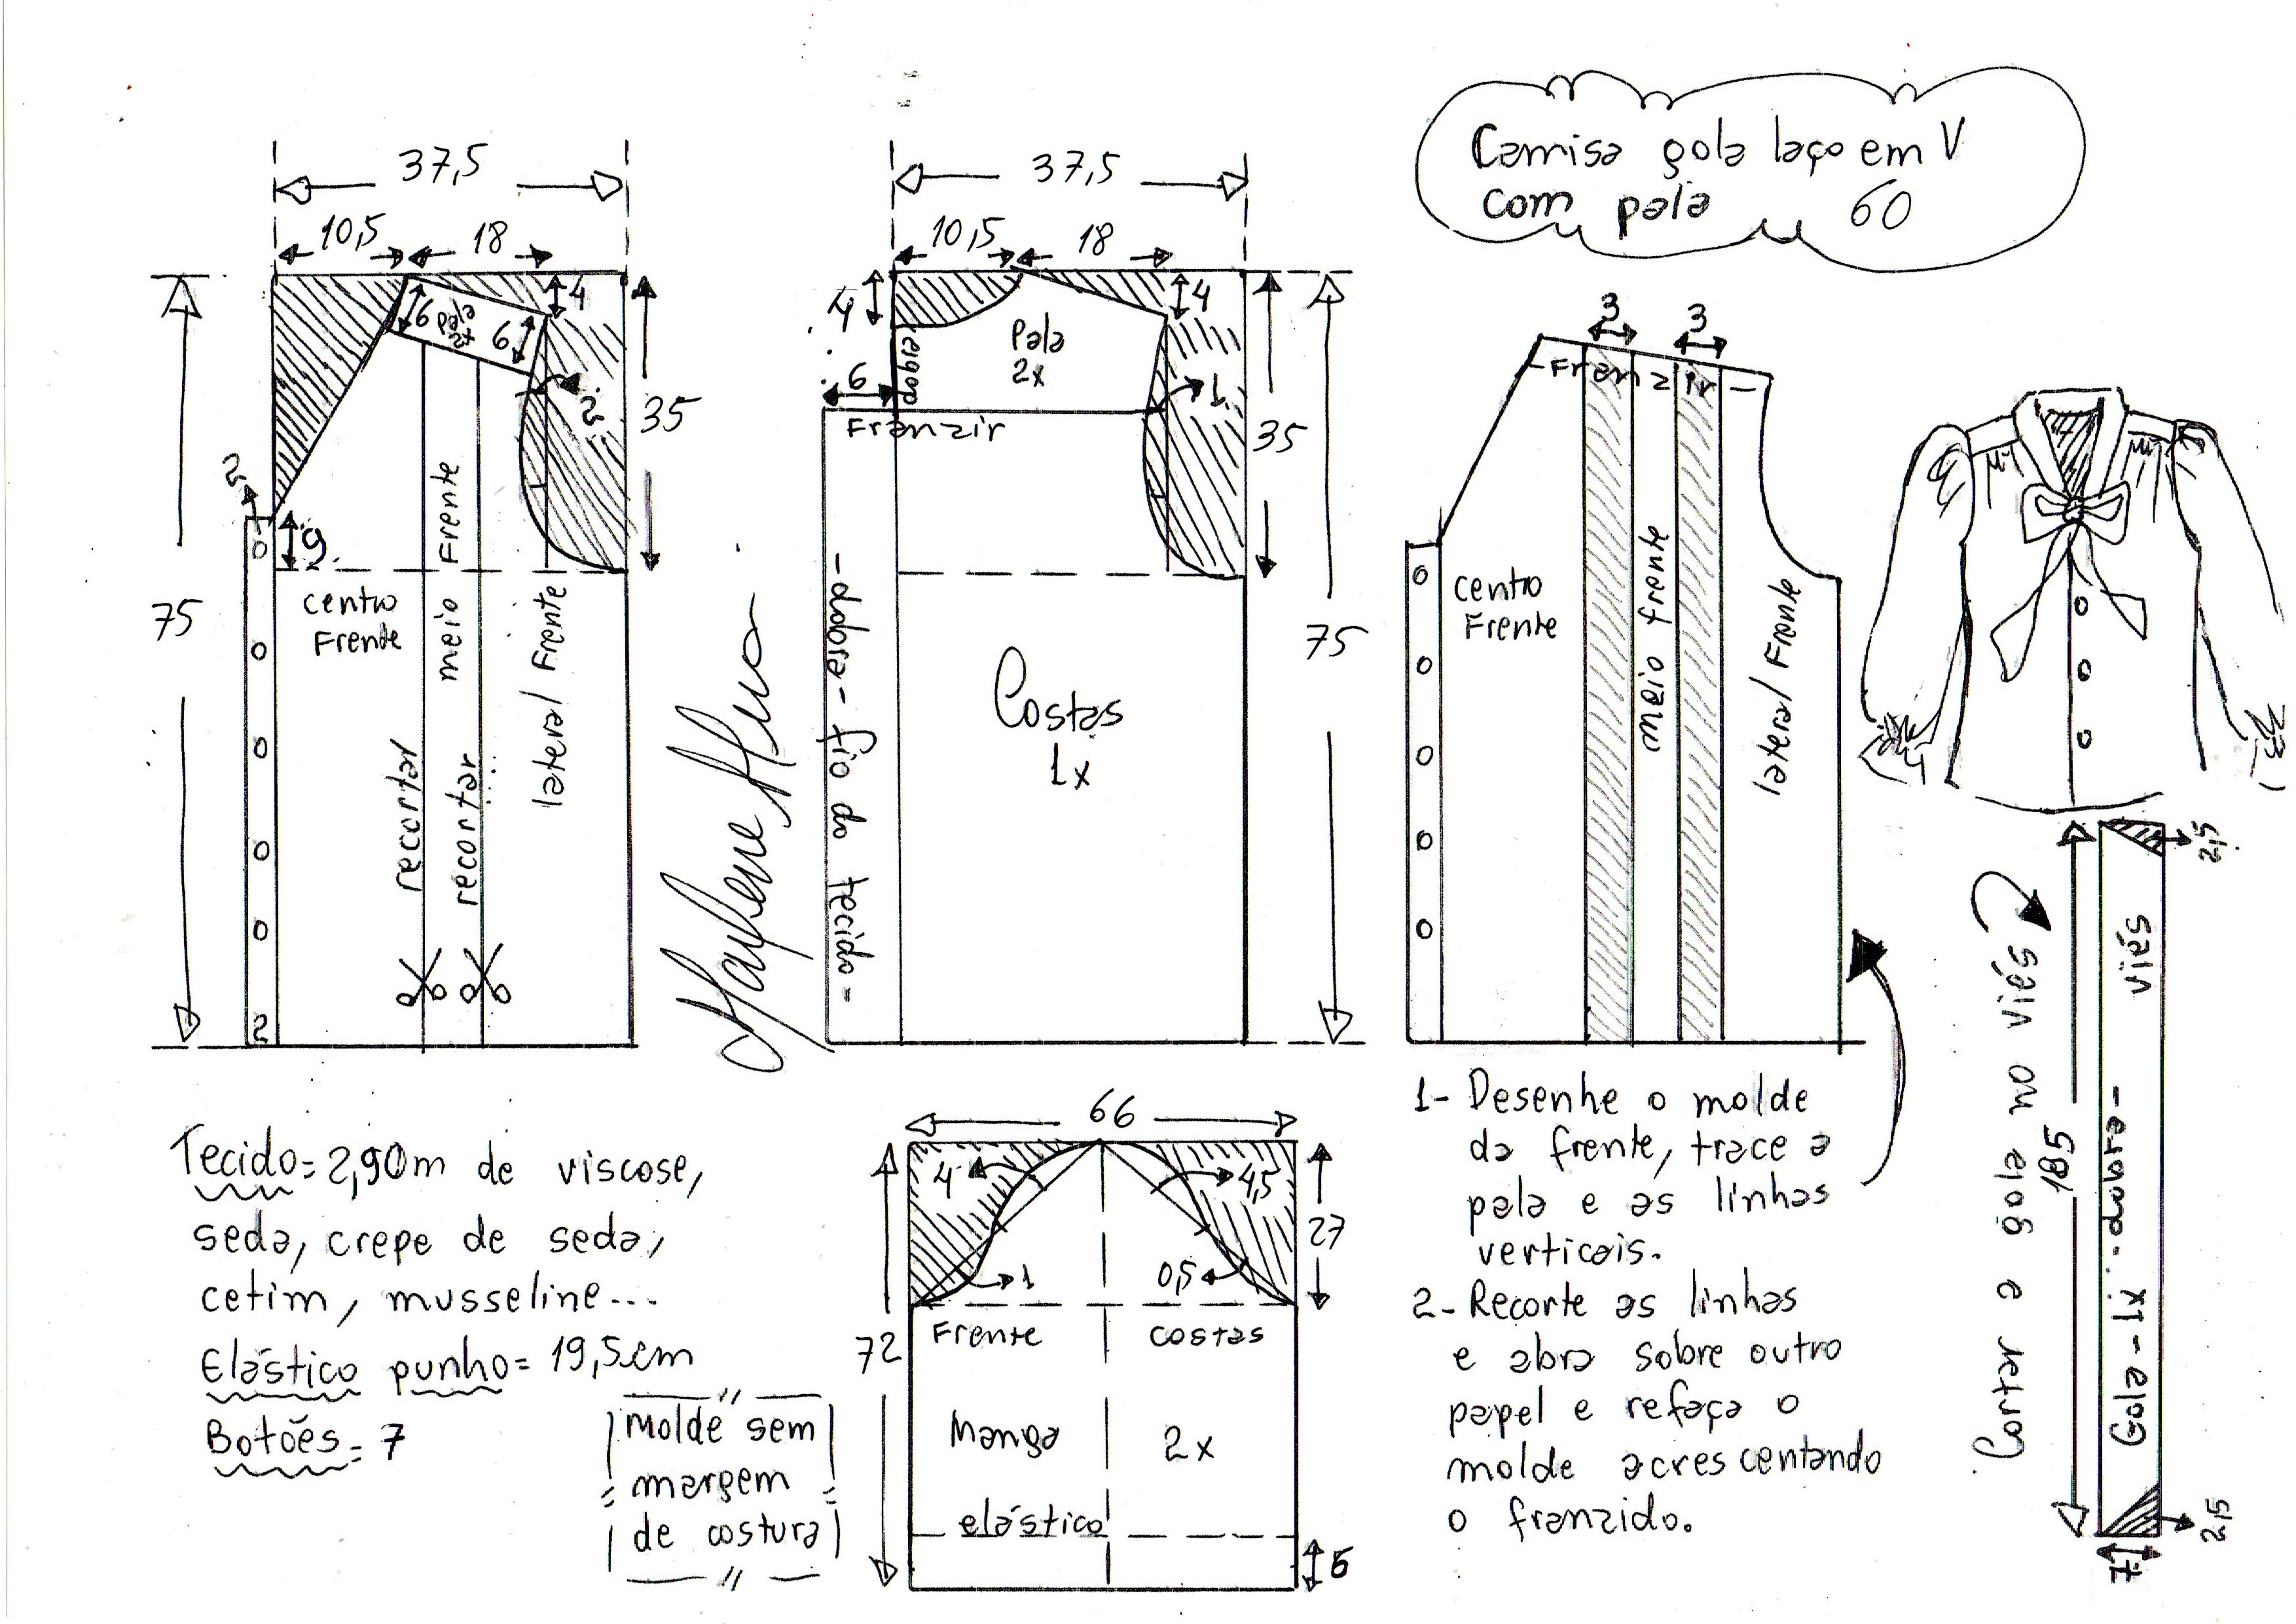 Camisa gola laço em V
com pala 60
37,5
10,5
18
4
6
pala
2x
6
2
35
75
2
9
centro
Frente
meio Frente
lateral Frente
recortar
recortar
2
37,5
10,5
18
4
4
dobra
Pala
2x
6
1
Franzir
35
75
-dobra- fio do tecido-
Costas
1x
Marlene Mukai
3
3
-Franzir-
centro
Frente
meio frente
lateral Frente
2,5
viés
Gola-1x -dobra-
185
Cortar a gola no viés
2,5
7
Tecido= 2,90m de viscose,
seda, crepe de seda,
cetim, musseline...
Elástico punho= 19,5cm
Botões= 7
molde sem
margem
de costura
66
4
4,5
27
1
0,5
Frente
costas
72
Manga
2x
elástico
6
1- Desenhe o molde
da frente, trace a
pala e as linhas
verticais.
2- Recorte as linhas
e abra sobre outro
papel e refaça o
molde acrescentando
o franzido.